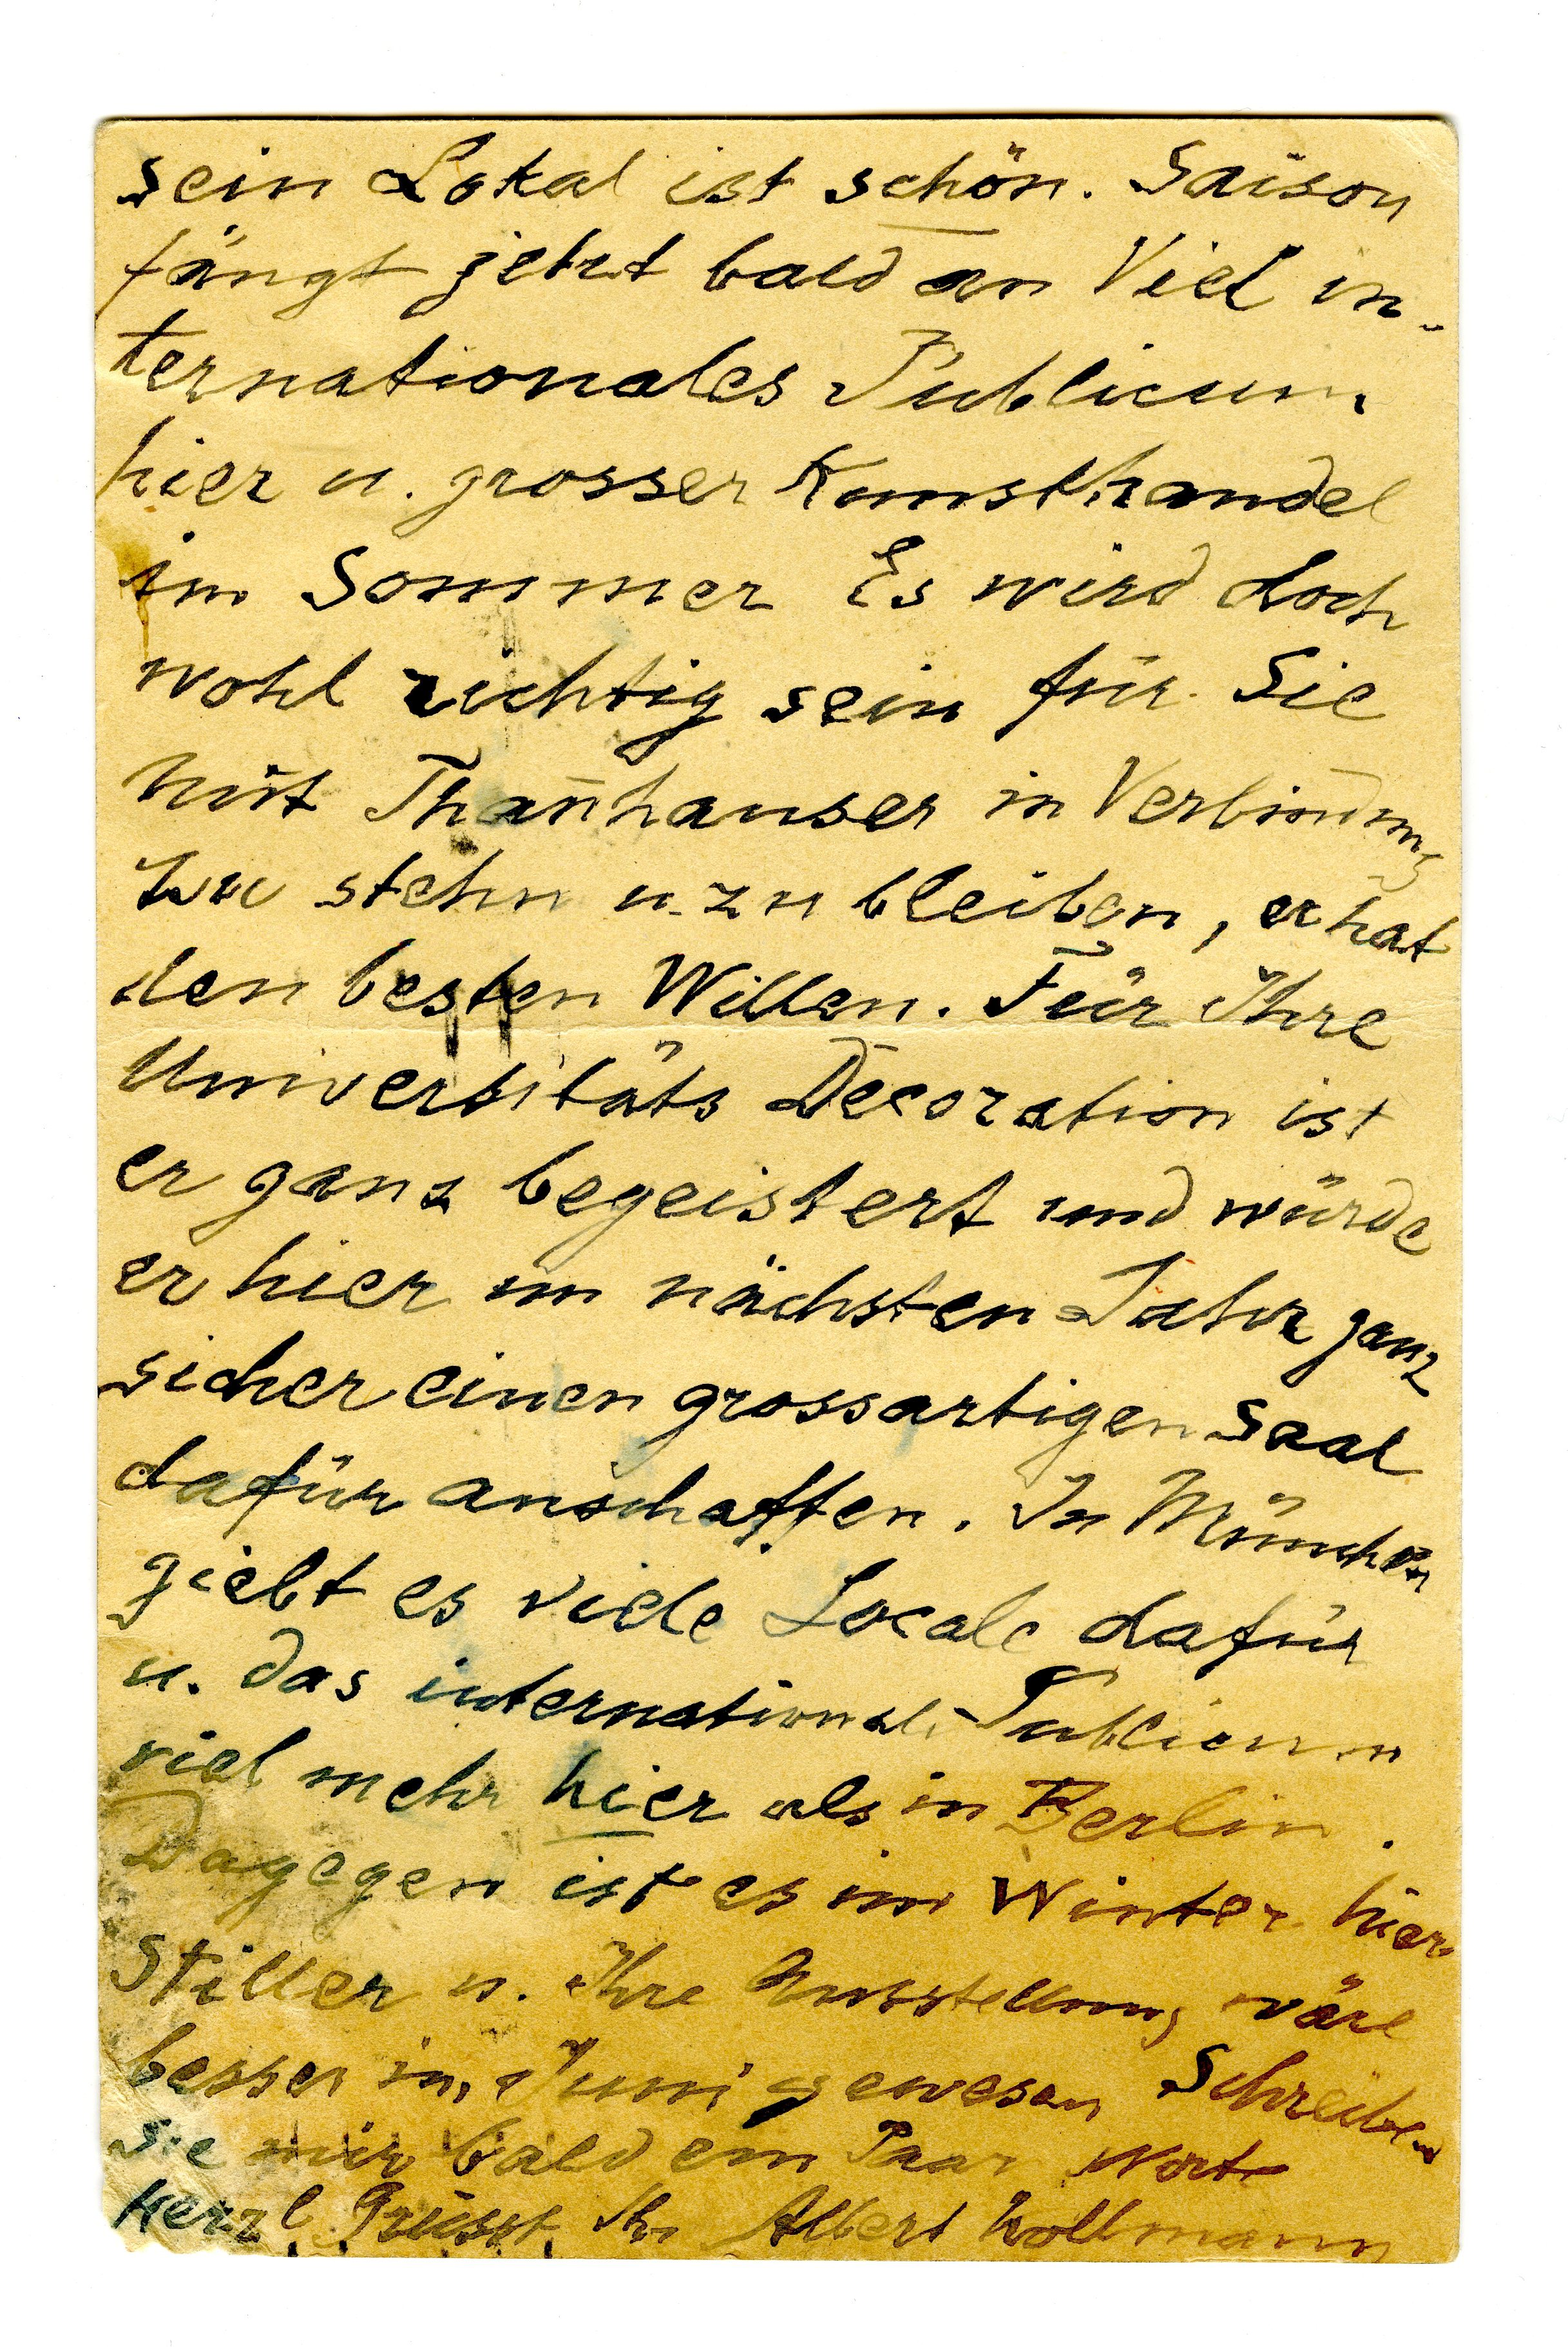 sein Lokal ist schön. Saison
fängt jetzt bald an Viel in-
ternationales Publicum
hier u. grosser Kunsthandel
im Sommer Es wird doch
wohl richtig sein für Sie
mit Thanhauser in Verbindung
zu stehn u. zu bleiben, er hat
den besten Willen. Für Ihre
Universitäts Decoration ist
er ganz begeistert und würde
er hier im nächsten Jahr ganz
sicher einen grossartigen Saal
dafür anschaffen. In München
giebt es viele Locale dafür
u. das internationale Publicum
viel mehr hier als in Berlin.
Dagegen ist es im Winter hier
stiller u. Ihre Ausstellung wäre
besser im Juni gewesen Schreiben
Sie mir bald ein Paar Worte
Herzl. Grüsst Ihr Albert Kollmann